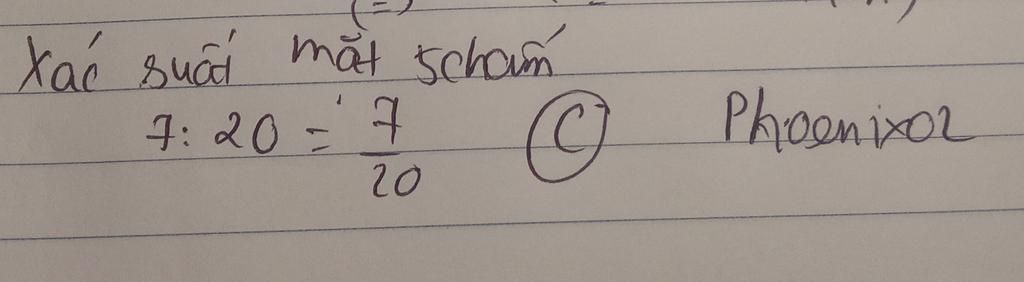 Xác suất mặt 5 chấm
7 : 20 = 7/20 C Phoenix02